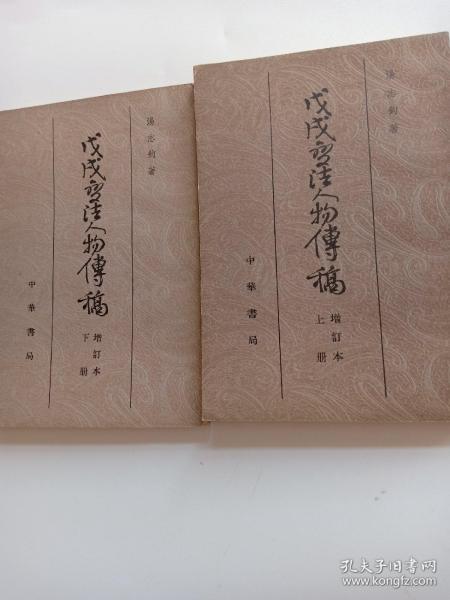 湯志鈞著
戊戌变法人物傳稿
增訂本
下册
中華書局
湯志鈞著
戊戌变法人物傳稿
增訂本
上册
中華書局
孔夫子旧书网
www.kongfz.com